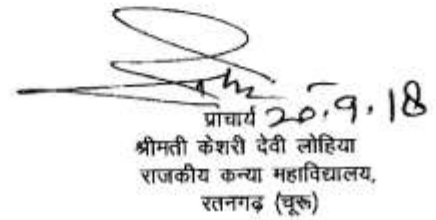 प्राचार्य 20.9.18
श्रीमती केशरी देवी लोहिया
राजकीय कन्या महाविद्यालय,
रतनगढ़ (चूरू)